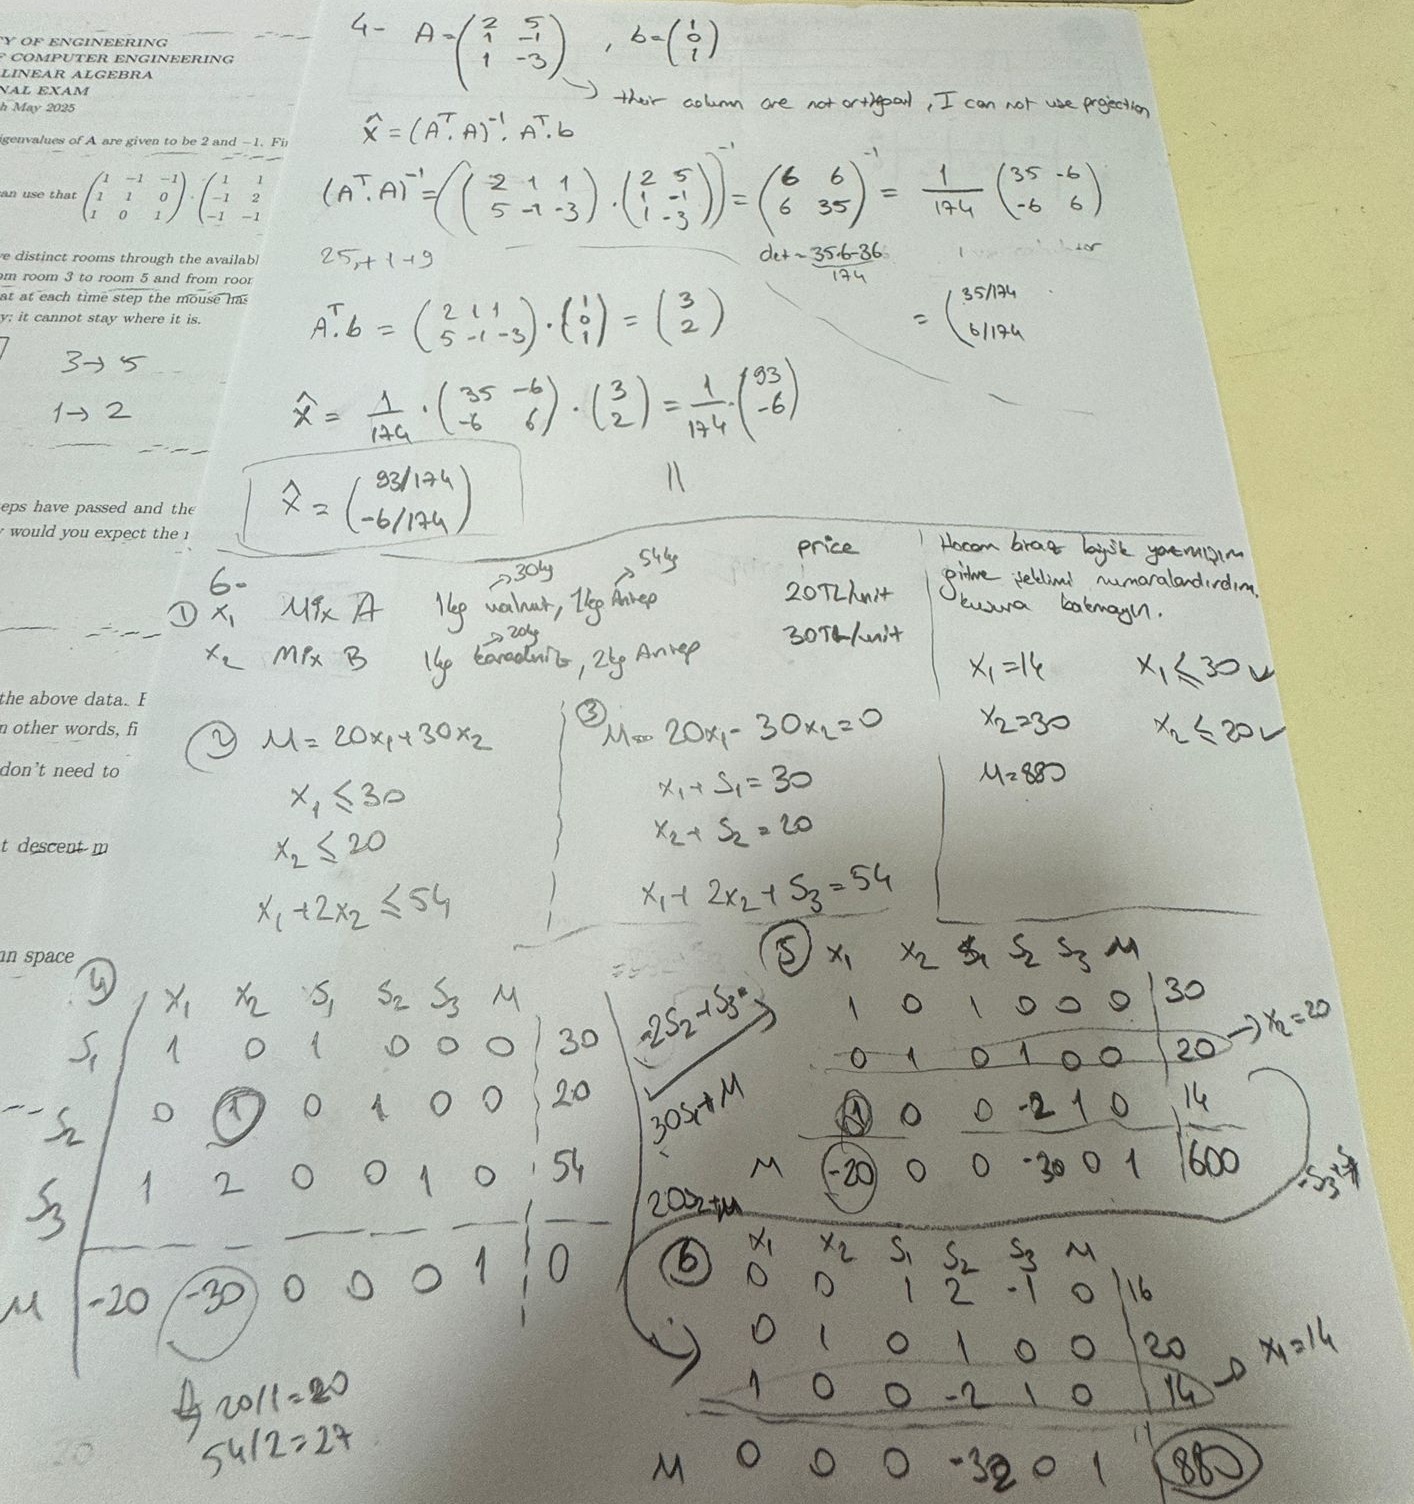 Y OF ENGINEERING
F COMPUTER ENGINEERING
LINEAR ALGEBRA
NAL EXAM
h May 2025
igenvalues of A are given to be 2 and −1. Fi
an use that (1 −1 −1; 1 1 0; 1 0 1) · (1 1; −1 2; −1 −1)
e distinct rooms through the availabl
om room 3 to room 5 and from room
at at each time step the mouse has
y; it cannot stay where it is.
3→5
1→2
eps have passed and the
would you expect the
the above data. F
n other words, fi
don't need to
t descent m
nn space
4- A=(2 5; 1 -1; 1 -3), b=(1; 0; 1)
their column are not orthgoal, I can not use projection
x̂ = (Aᵀ.A)⁻¹. Aᵀ.b
(Aᵀ.A)⁻¹=((2 1 1; 5 -1 -3).(2 5; 1 -1; 1 -3))⁻¹=(6 6; 6 35)⁻¹ = 1/174 (35 -6; -6 6)
25+1+9
det = 35.6-36
174
Aᵀ.b = (2 1 1; 5 -1 -3).(1; 0; 1) = (3; 2)
= (35/174
6/174
x̂ = 1/174 . (35 -6; -6 6) . (3; 2) = 1/174 . (93; -6)
x̂ = (93/174; -6/174)
6-
price
→30kg →54kg
① x₁ Mix A 1kg walnut, 1kg Antep 20TL/unit
→20kg
x₂ Mix B 1kg, 2kg Antep 30TL/unit
Hocam biraz büyük yazmışım
şeklimi numaralandırdım,
kusura bakmayın.
x₁=14 x₁≤30 ✓
x₂=30 x₂≤20 ✓
M=880
② M= 20x₁+30x₂
x₁≤30
x₂≤20
x₁+2x₂≤54
③ M- 20x₁- 30x₂=0
x₁+ S₁=30
x₂+ S₂=20
x₁+ 2x₂+ S₃=54
④ x₁ x₂ S₁ S₂ S₃ M
S₁ 1 0 1 0 0 0 30
S₂ 0 1 0 1 0 0 20
S₃ 1 2 0 0 1 0 54
M -20 -30 0 0 0 1 0
20/1=20
54/2=27
-2S₂+S₃
30S₂+M
20S₂+M
⑤ x₁ x₂ S₁ S₂ S₃ M
1 0 1 0 0 0 30
0 1 0 1 0 0 20 → x₂=20
1 0 0 -2 1 0 14
M -20 0 0 -30 0 1 600
⑥ x₁ x₂ S₁ S₂ S₃ M
0 0 1 2 -1 0 16
0 1 0 1 0 0 20
1 0 0 -2 1 0 14 → x₁=14
M 0 0 0 0 1 880